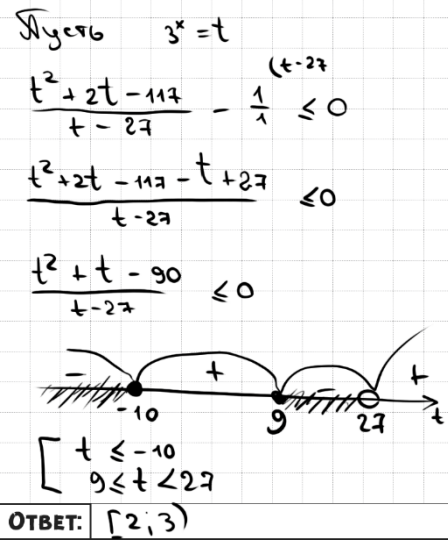 Пусть 3ˣ = t
(t-27
t² + 2t - 117 / t - 27 - 1/1 ≤ 0
t² + 2t - 117 - t + 27 / t - 27 ≤ 0
t² + t - 90 / t - 27 ≤ 0
- + - +
-10 9 27 t
[ t ≤ -10
9 ≤ t < 27
ОТВЕТ: [2; 3)